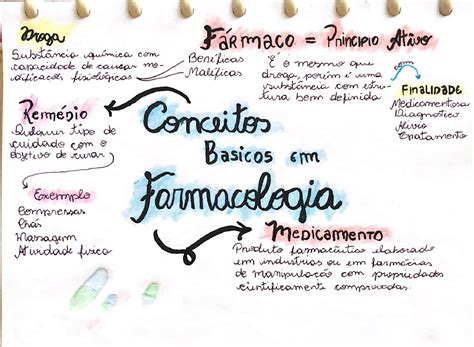 Droga
Substância química com
capacidade de causar mo-
dificações fisiológicas
Benéficas
Maléficas
Fármaco = Princípio Ativo
É o mesmo que
droga, porém é uma
substância com estru
tura bem definida
Finalidade
Medicamentosa
Diagnóstico
Alívio
Tratamento
Remédio
Qualquer tipo de
cuidado com o
objetivo de curar
Exemplo
Compressas
Chás
Massagem
Atividade física
Conceitos
Basicos em
Farmacologia
Medicamento
Produto farmacêutico elaborado
em industrias ou em farmácias
de manipulação com propriedades
cientificamente comprovadas.